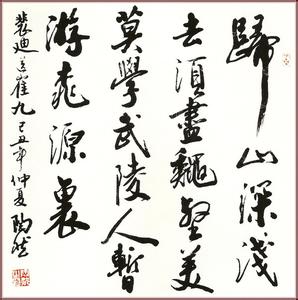 歸山深淺
去須盡壑美
莫學武陵人暫
游桃源裏
裴迪送崔九己丑年仲夏陶然